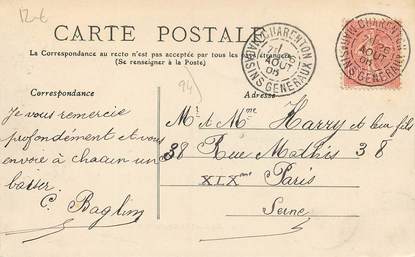 12-6
CARTE POSTALE
La Correspondance au recto n'est pas acceptée par tous les pays étrangers
(Se renseigner à la Poste)
CHARENTON
MAGASINS GÉNÉRAUX
AOUT
CHARENTON
MAGASINS GENERAUX
AOUT
94)
Correspondance
Adresse
Je vous remercie
profondément et vous
envoie à chacun un
baiser.
C. Baglin
Mr et Mme Harry et leur fils
38 Rue Mathis 38
XIXme Paris
Seine